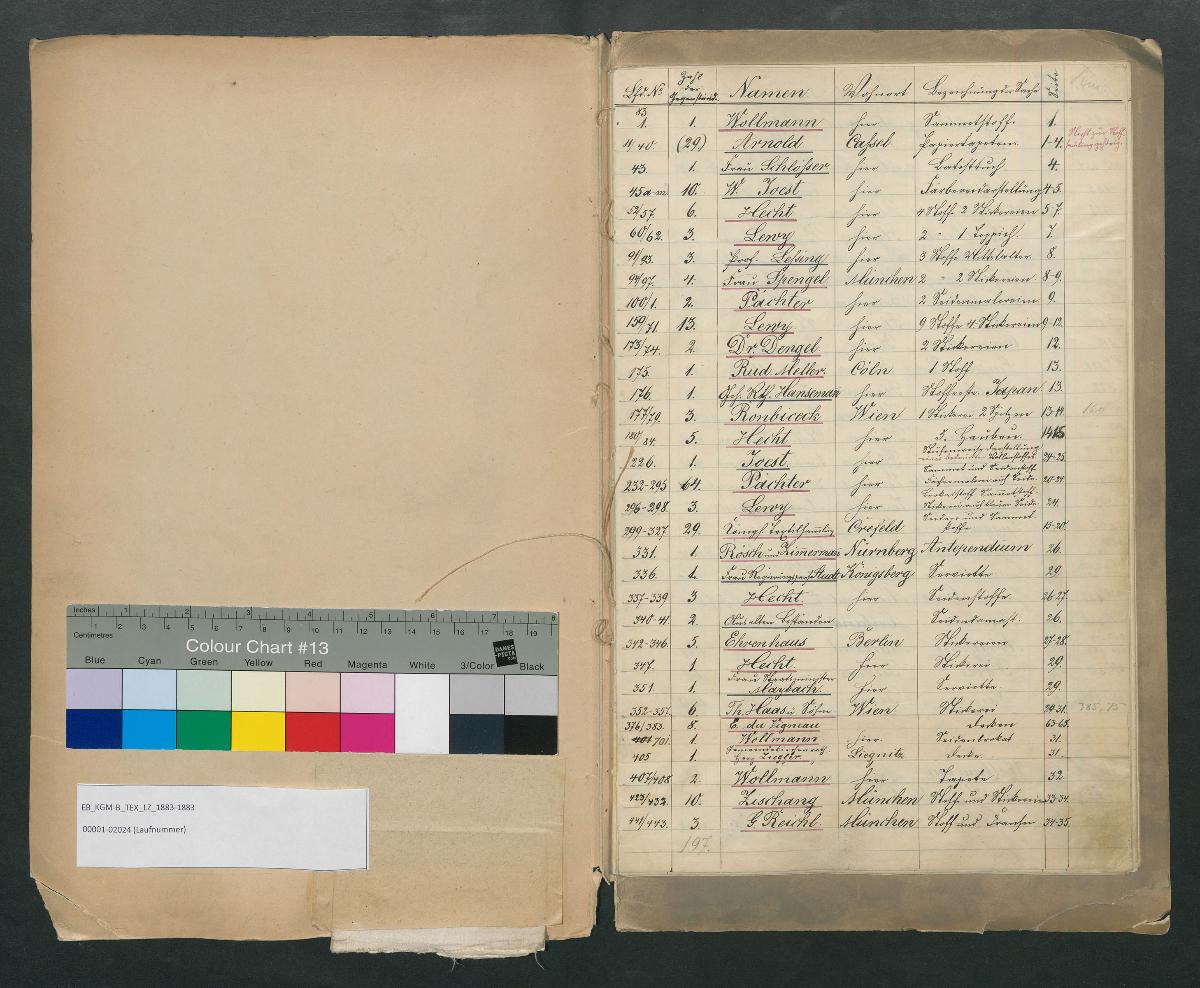 Inches 1 2 3 4 5 6 7 8
Centimetres 2 3 4 5 6 7 8 9 10 11 12 13 14 15 16 17 18 19
Colour Chart #13
DANES-PICTA.COM
Blue Cyan Green Yellow Red Magenta White 3/Color Black
EB_KGM-B_TEX_LZ_1883-1883
00001-02024 (Laufnummer)
Lfd. No Zahl der Gegenstände. Namen Wohnort Bezeichnung der Sache Seite
83
1. 1. Wollmann hier Sammetstoff. 1.
11/40. (29.) Arnold Cassel Papiertapeten. 1-4.
43. 1. Frau Schlösser hier 4.
45a-m. 10. W. Joest hier 4-5.
52/57. 6. Hecht hier 4 Stoffe 2 Stickereien 5-7.
60/62. 3. Lewy hier 2 " 1 Teppich. 7.
91/93. 3. Prof. Lessing hier 3 Stoffe Mittelalter. 8.
94/97. 4. Frau Spengel München 2 " 2 Stickereien 8-9.
100/1. 2. Pächter hier 2 Seidenmalereien 9.
159/71. 13. Lewy hier 9 Stoffe 4 Stickereien 9-12.
173/74. 2. Dr. Dengel hier 2 Stickereien 12.
175. 1. Rud. Meller. Cöln 1 Stoff 13.
176. 1. Geh. Rth. Hansemann hier Stoffreste Japan. 13.
177/79. 3. Ronbiceck Wien 1 Stickerei 2 Spitzen 13-14.
180/84. 5. Hecht hier 5. Hauben 14-15
226. 1. Joest. hier 24-25
232-295 64. Pächter hier Sammet und Seidenstoff. 20-24.
296-298. 3. Lewy hier 24.
299-327 29. Königl. Textilsammlung Crefeld Seiden und Sammet-stoffe 15-20.
331. 1. Rösch und Zimmermann Nürnberg Antependium 26.
336. 1. Frau Königsberg Serviette 29
337-339 3 Hecht hier Seidenstoffe 26-27.
340-41. 2. Aus alten Beständen Seidendamast. 26.
342-346. 5. Ehrenhaus Berlin Stickereien 27-28.
347. 1. Hecht. hier Stickerei 29.
351. 1. Frau Staatsminister Maybach. hier Serviette 29.
352-357. 6. Ph. Haas u. Söhne Wien Stickerei 29-31. 385,75
376/383. 8. E. du Vigneau Decken 63-65.
401 701. 1. Wollmann hier. Seidenbrokat 31.
405 1. Herr Ziegler. Liegnitz Decke. 31.
407/408 2. Wollmann hier Tapete 32
423/432. 10. Zischang München Stoffe und Stickereien 33-34.
441/443. 3. G. Reichl München Stoff und Fransen 34-35.
197.